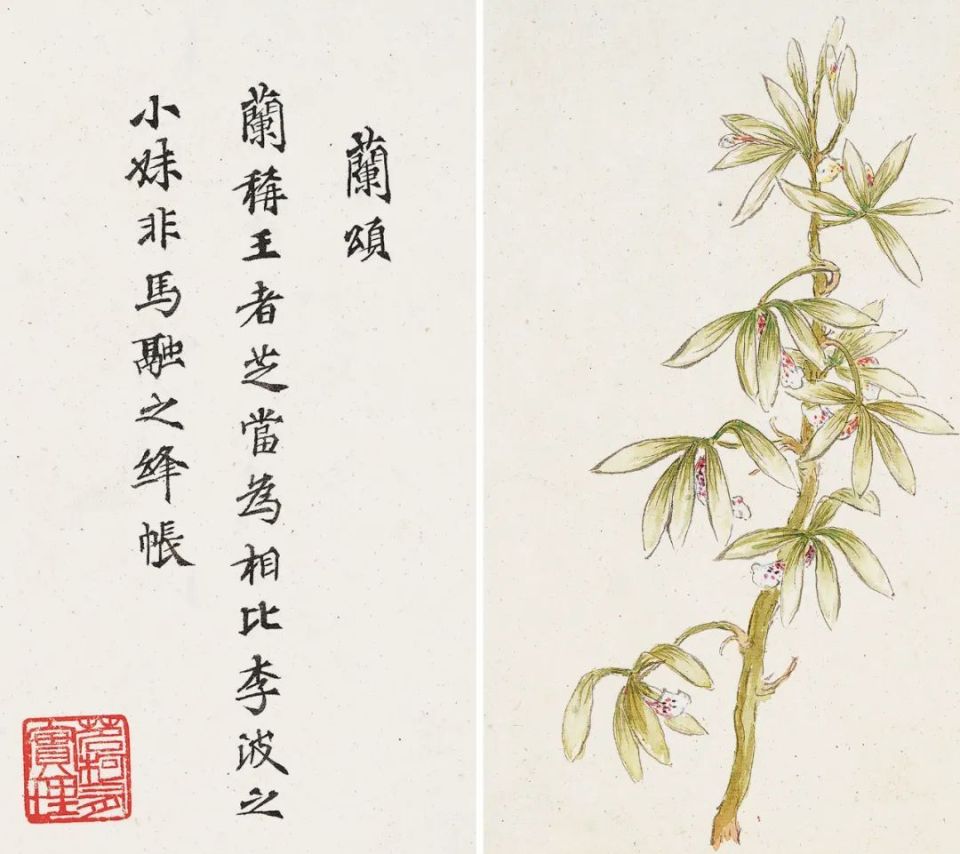 蘭頌
蘭稱王者芝當為相比李波之
小妹非馬融之絳帳